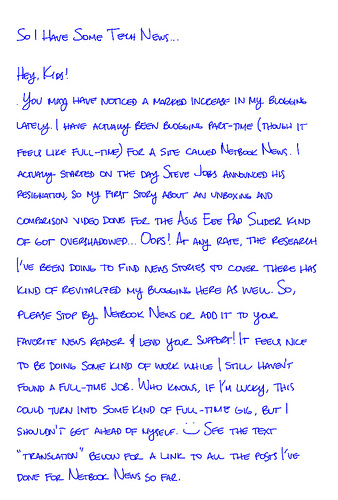 So I Have Some Tech News...
Hey, Kids!
. You may have noticed a marked increase in my blogging
lately. I have actually been blogging part-time (though it
feels like full-time) for a site called Netbook News. I
actually started on the day Steve Jobs announced his
resignation, so my first story about an unboxing and
comparison video done for the Asus Eee Pad Slider kind
of got overshadowed... Oops! At any rate, the research
I've been doing to find news stories to cover there has
kind of revitalized my blogging here as well. So,
please stop by Netbook News or add it to your
favorite news reader & lend your support! It feels nice
to be doing some kind of work while I still haven't
found a full-time job. Who knows, if I'm lucky, this
could turn into some kind of full-time gig, but I
shouldn't get ahead of myself. :) See the text
"translation" below for a link to all the posts I've
done for Netbook News so far.